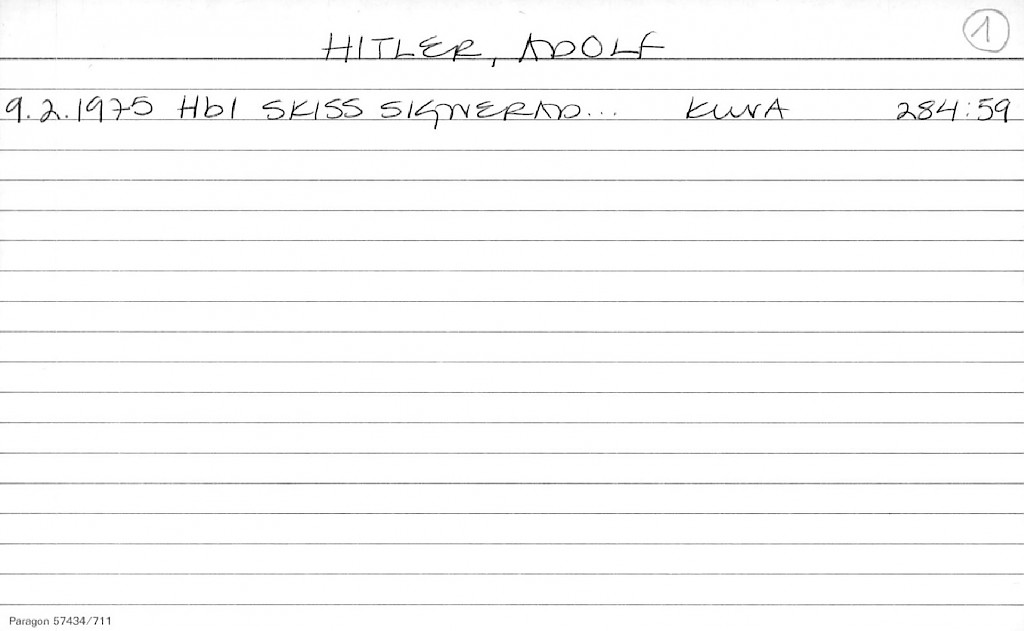 HITLER, ADOLF 1
9.2.1975 Hbl SKISS SIGNERAD... KUVA 284:59
Paragon 57434/711